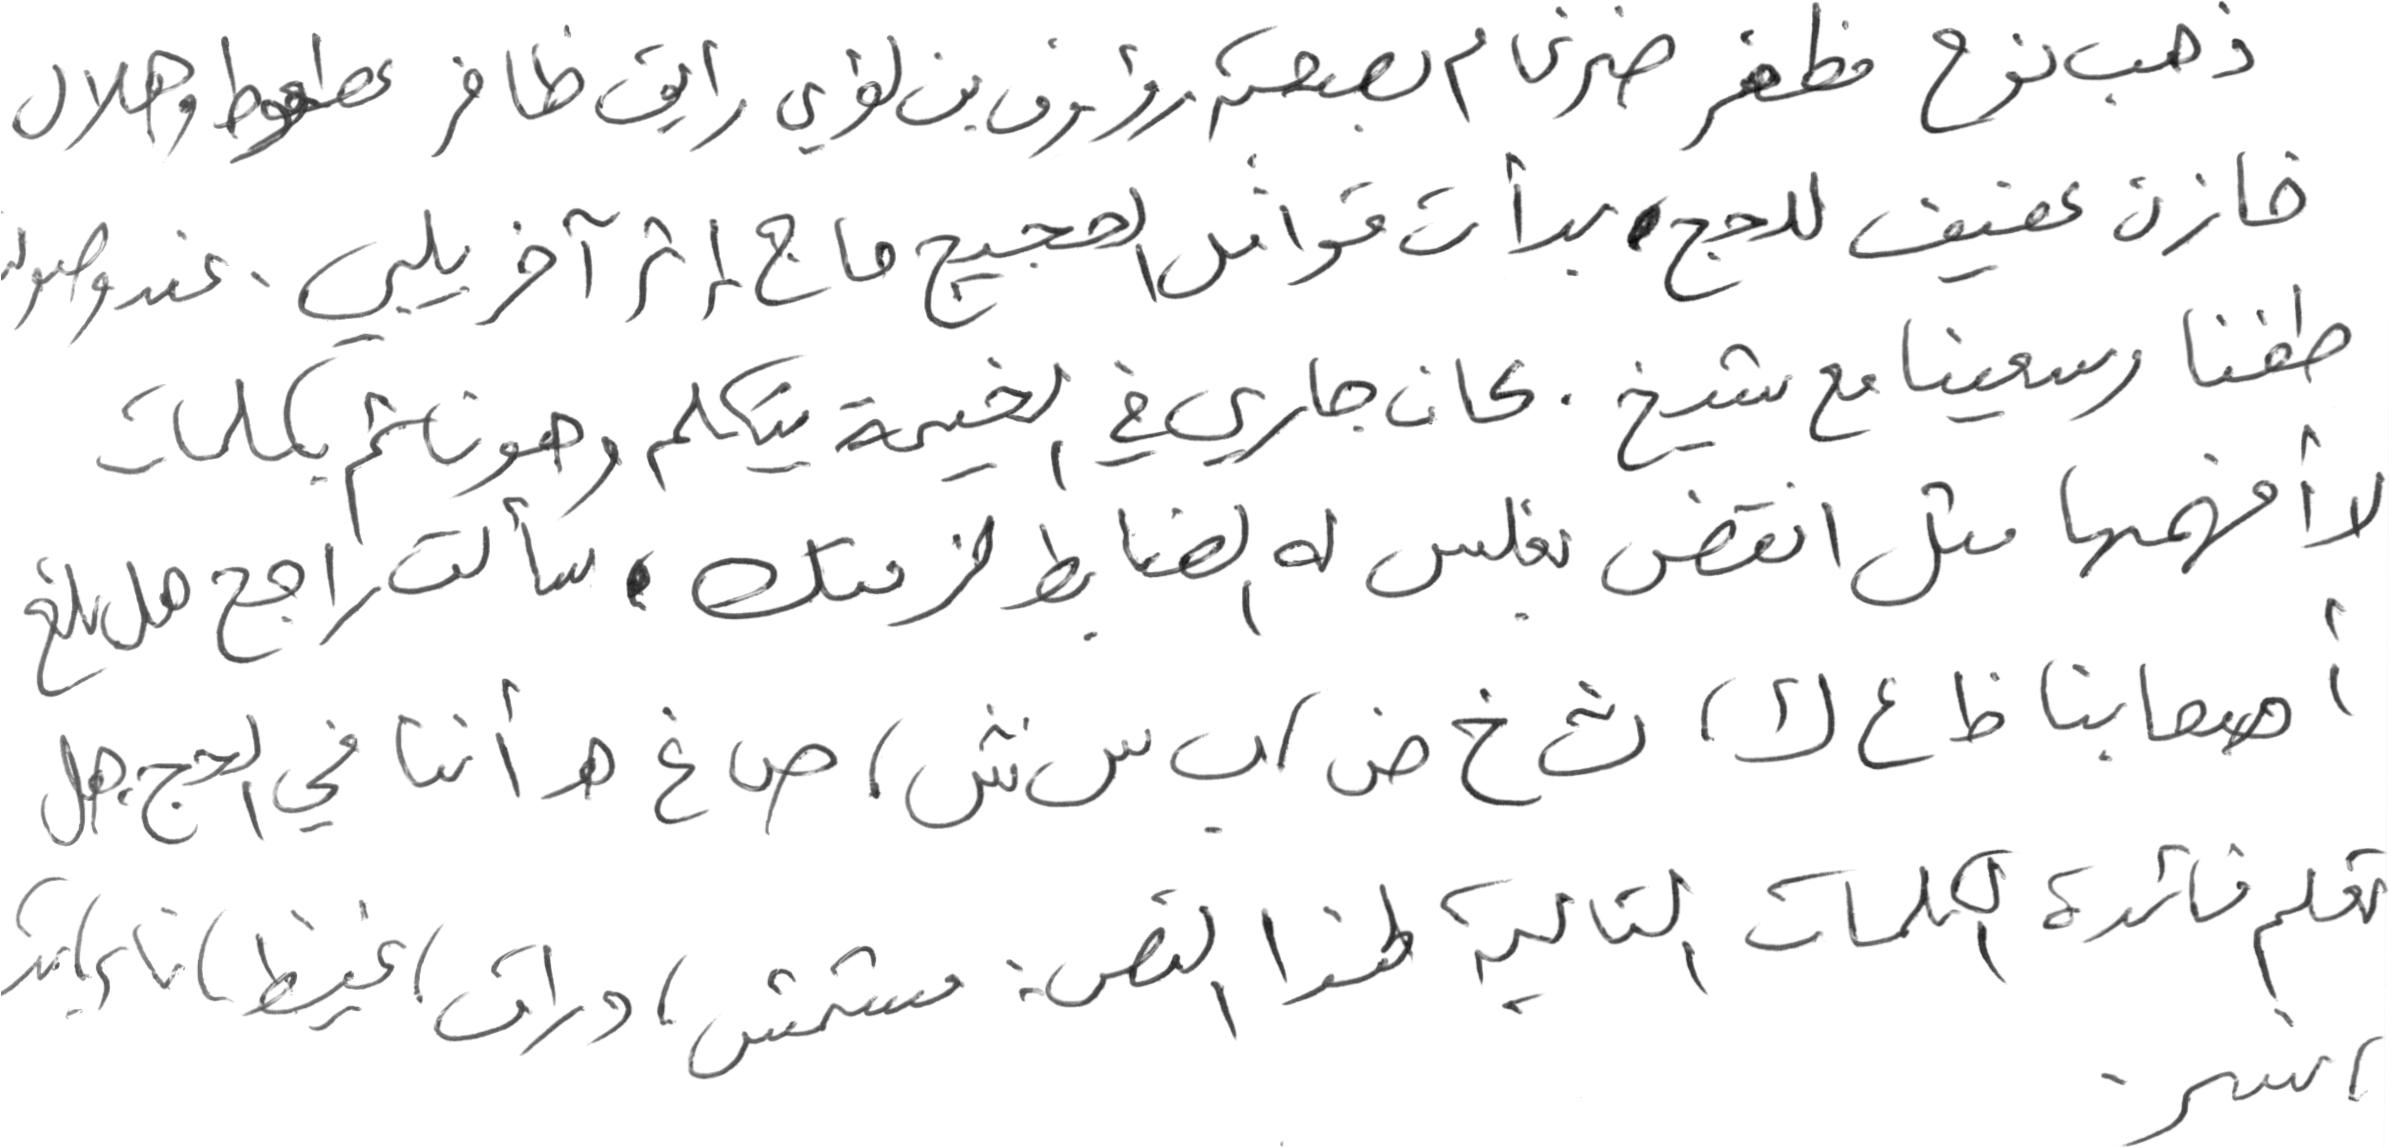 ذهب نوح مظفر ضرغام بصحبة رؤوف بن لؤي رايق ظافر عطعوط وهلال
خازن عفيف للحج، بدأت قوافل الحجيج حاج إثر آخر يلبي. عند وصولنا
طفنا وسعينا مع شيخ. كان جاري في الخيمة يتكلم وهو نائم بكلمات
لا أفهمها مثل انقض بغلس له الضابط لزمتك، سألت راجح هل بلغ
أصحابنا ظ ع ك، ث خ ض، ب س ش، ص غ ه أننا في الحج. هل
تعلم فائدة الكلمات التالية لهذا النص: مستمش، دراق، غيظ، ناي،
، انسر.